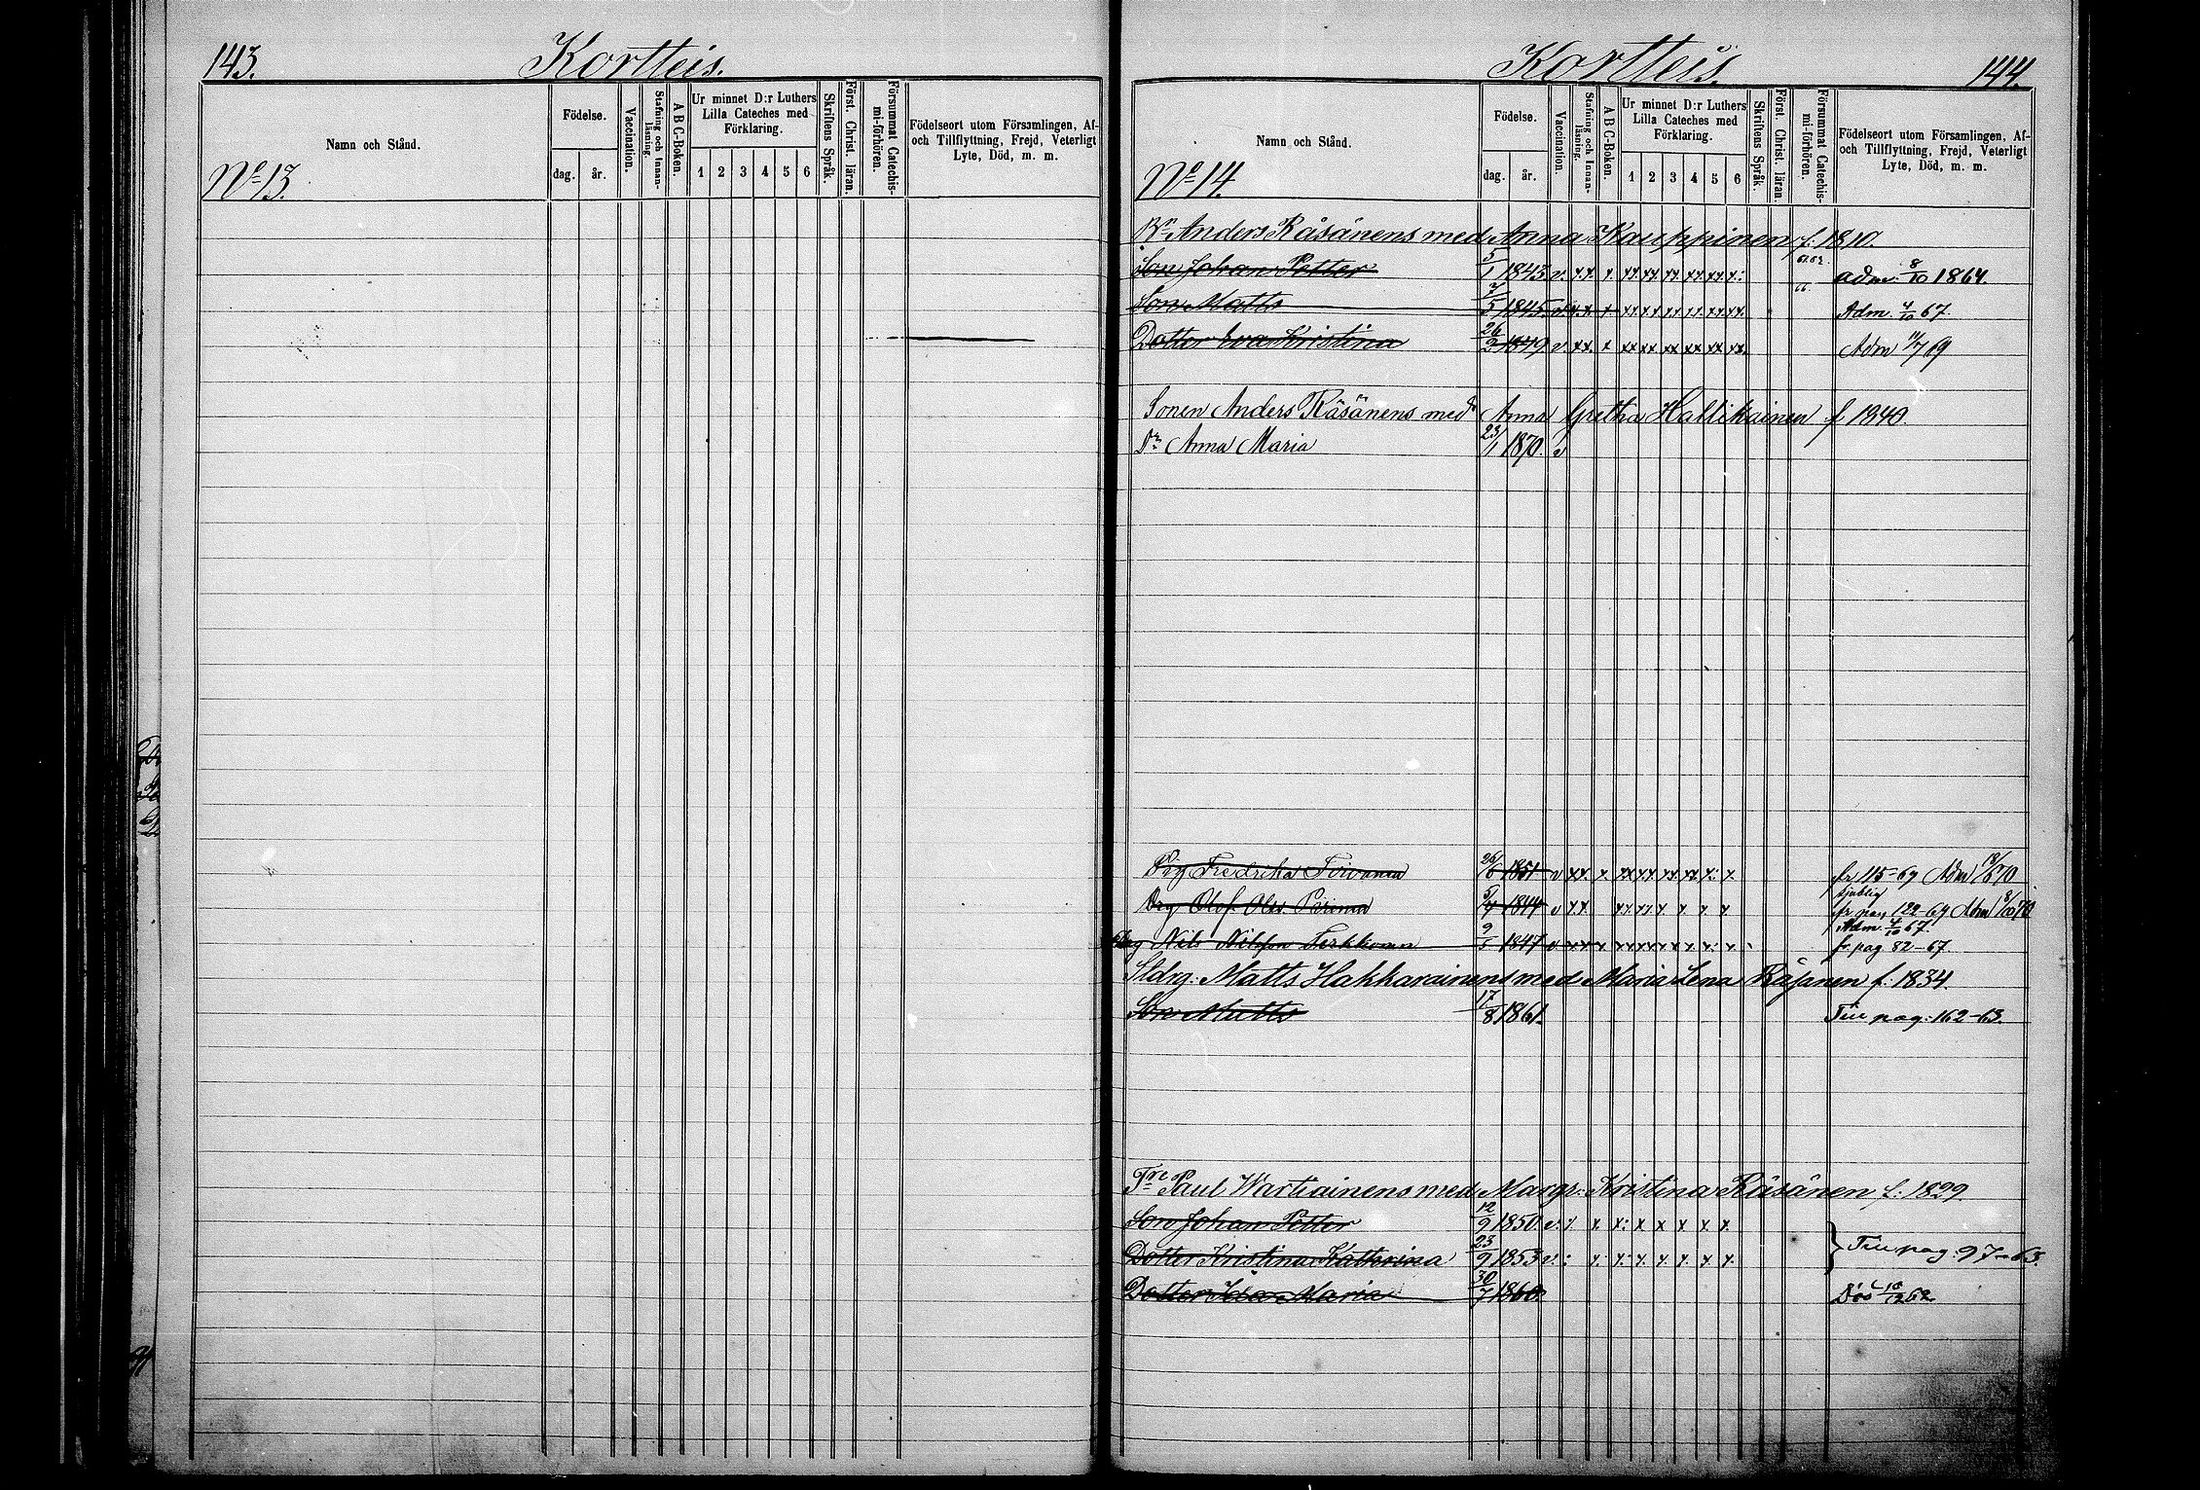 143.
Kortteis.
Namn och Stånd.
Födelse.
dag. år.
Vaccination.
Stafning och Innan-läsning.
A B C-Boken.
Ur minnet D:r Luthers
Lilla Cateches med
Förklaring.
1 2 3 4 5 6
Skriftens Språk.
Först. Christ. läran.
Försummat Catechis-mi-förhören.
Födelseort utom Församlingen, Af-
och Tillflyttning, Frejd, Veterligt
Lyte, Död, m. m.
No 13.
Kortteis.
144.
Namn och Stånd.
Födelse.
dag. år.
Vaccination.
Stafning och Innan-läsning.
A B C-Boken.
Ur minnet D:r Luthers
Lilla Cateches med
Förklaring.
1 2 3 4 5 6
Skriftens Språk.
Först. Christ. läran.
Försummat Catechis-mi-förhören.
Födelseort utom Församlingen, Af-
och Tillflyttning, Frejd, Veterligt
Lyte, Död, m. m.
No 14.
Anders Räsänens med Anna Kauppinen f. 1810.
Son Johan Petter 5/1 1843 v. adm. 8/10 1864.
Son Matts 7/5 1845 66. Adm. 4/10 67.
Dotter Eva Kristina 26/2 1849 v. Adm 11/7 69
Sonen Anders Räsänens med Anna Gretha Hallikainen f 1840.
Dr Anna Maria 23/1 1870. v
Pig Fredrika Toivanen 26/6 1851 v fr 115-69 Adm 18/6 70
Drg Olof Olss. Piirinen 5/7 1844 v fr pag 122-69 Adm 9/10 70
Drg Nils Nilsson Terkkonen 9/5 1847 v Adm. 4/10 67. fr pag 82-67.
Sldrg. Matts Hakkarainens med Maria Lena Räsänen f. 1834.
Son Matts 17/8 1861. Till pag. 162-63.
Paul Wartiainens med Margr. Kristina Räsänen f. 1829.
Son Johan Petter 12/9 1850 v.
Dotter Kristina Katterina 23/9 1853 v. Till pag. 97-63.
Dotter Ida Maria 30/7 1860. Död 62